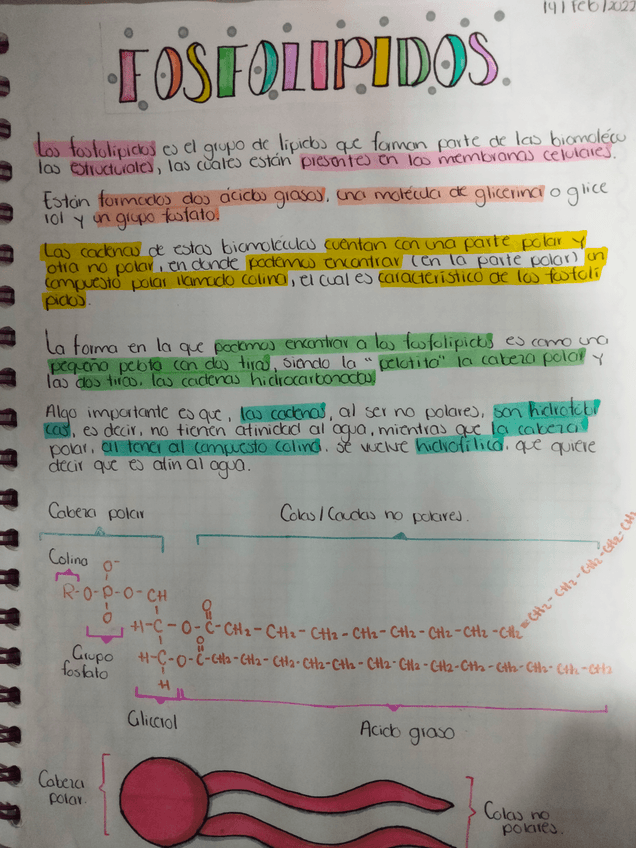 14/Feb/2022
FOSFOLIPIDOS
Los fosfolipidos es el grupo de lipidos que forman parte de las biomolécu
las estructurales, las cuales están presentes en las membranas celulares.
Están formados dos ácidos grasos, una molécula de glicerina o glice
rol y un grupo fosfato.
Las cadenas de estas biomoléculas cuentan con una parte polar y
otra no polar, en donde podemos encontrar (en la parte polar) un
compuesto polar llamado colina, el cual es característico de los fosfoli
pidos.
La forma en la que podemos encontrar a los fosfolipidos es como una
pequeña pelota con dos tiras, siendo la "pelotita" la cabeza polar y
las dos tiras, las cadenas hidrocarbonadas.
Algo importante es que, las cadenas, al ser no polares, son hidrofóbi
cas, es decir, no tienen afinidad al agua, mientras que la cabeza
polar, al tener al compuesto colina, se vuelve hidrofílica, que quiere
decir que es afin al agua.
Cabeza polar
Colas/Caudas no polares.
Colina
O⁻
R-O-P-O-CH
O
O
H-C-O-C-CH₂-CH₂-CH₂-CH₂-CH₂-CH₂-CH₂-CH₂=CH₂-CH₂-CH₂-CH₂-CH₂
O
H-C-O-C-CH₂-CH₂-CH₂-CH₂-CH₂-CH₂-CH₂-CH₂-CH₂-CH₂-CH₂-CH₂-CH₂-CH₂
H
Grupo
fosfato
Glicerol
Acido graso
Cabeza
polar.
Colas no
polares.